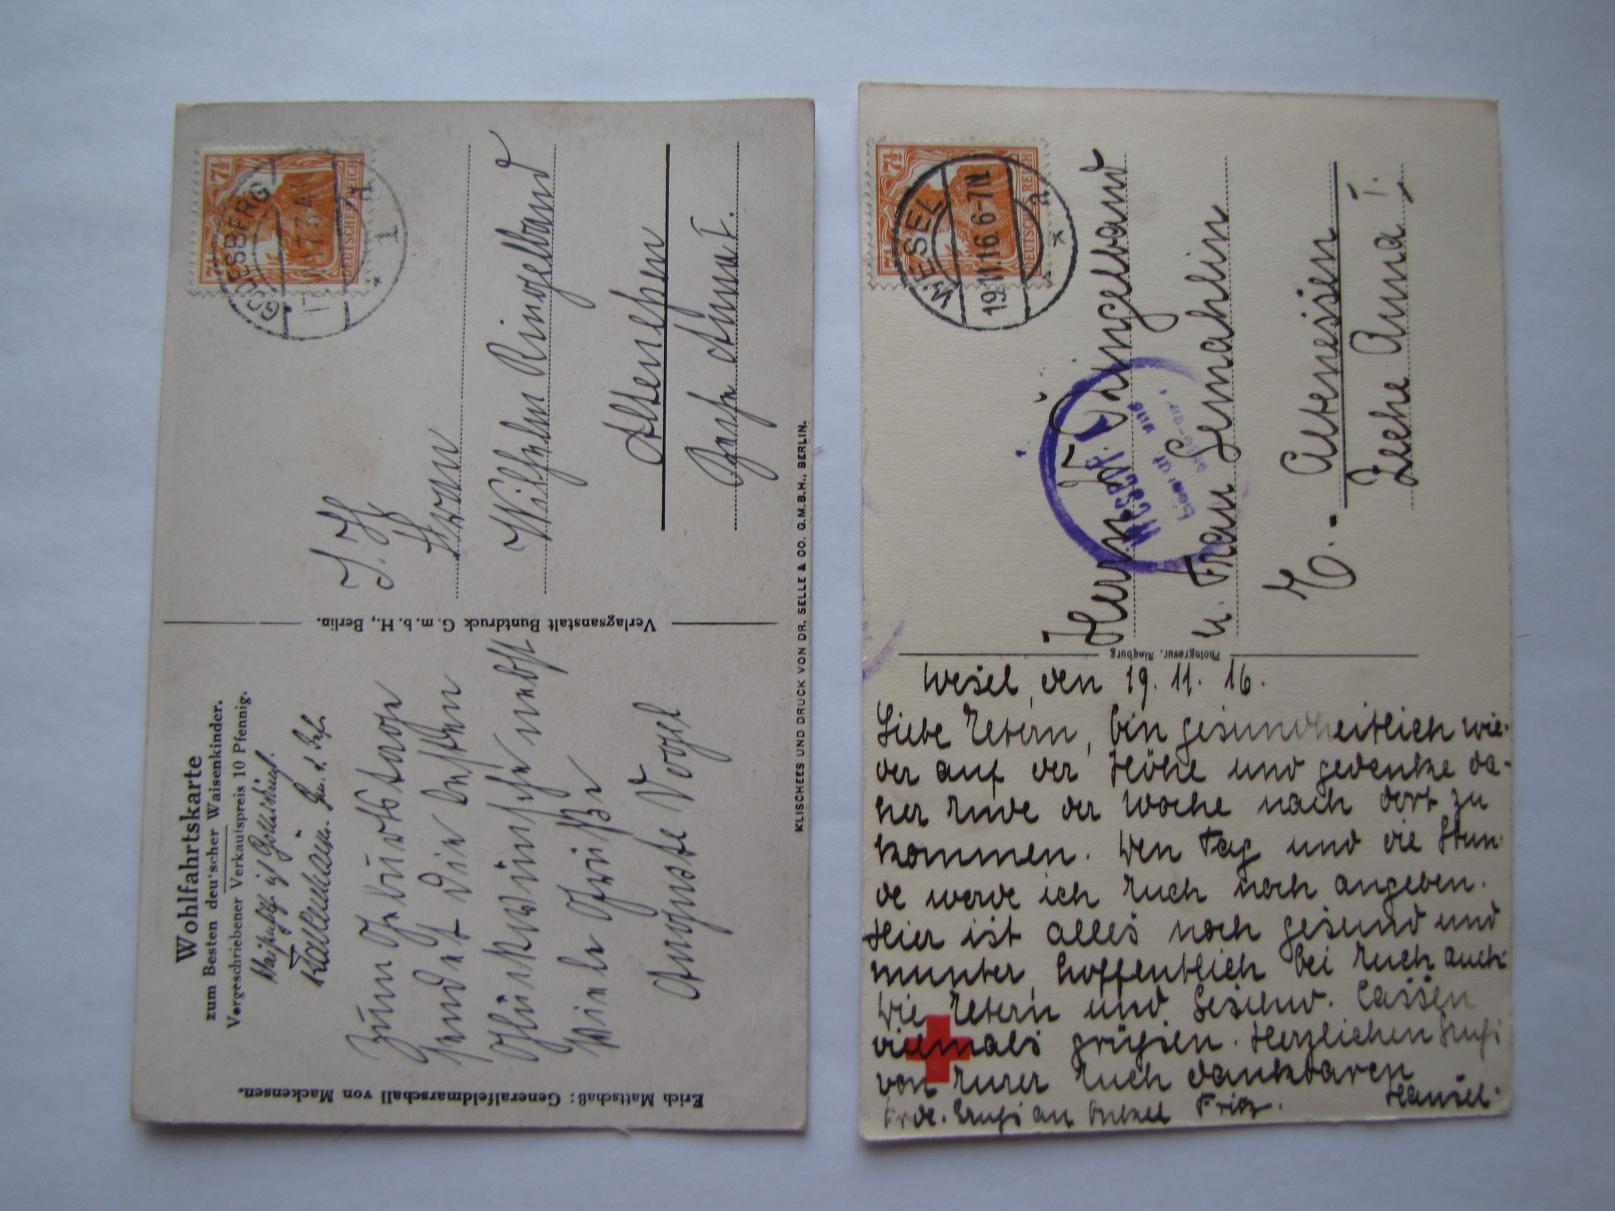 Wohlfahrtskarte
zum Besten deutscher Waisenkinder.
Vorgeschriebener Verkaufspreis 10 Pfennig.
Zum Geburtstage
sendet die besten
Glückwünsche nebst
Viele Grüße
Auguste Vogel
Erich Mattschaß: Generalfeldmarschall von Mackensen.
Verlagsanstalt Buntdruck G. m. b. H., Berlin.
KLISCHEES UND DRUCK VON DR. SELLE & CO. G.M.B.H., BERLIN.
7½
DEUTSCHES REICH
S. H.
Herrn
Wilhelm Ringelband
Altenessen
Zeche Anna I.
7½
DEUTSCHES REICH
WESEL
19.11.16.6-7N
Herrn W. Ringelband
u. Frau Gemahlin
Altenessen
Zeche Anna I.
Photogravur. Ringburg
Wesel, den 19. 11. 16.
Liebe Eltern, bin gesundheitlich wie-
der auf der Höhe und gedenke da-
her Ende der Woche nach dort zu
kommen. Den Tag und die Stun-
de werde ich Euch noch angeben.
Hier ist alles noch gesund und
munter, hoffentlich bei Euch auch.
Die Eltern und Geschw. lassen
vielmals grüßen. Herzlichen Gruß
von Eurer Euch dankbaren
Hansel.
Frdl. Gruß an Onkel Fritz.